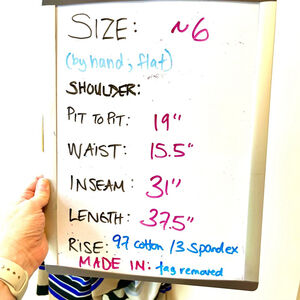 SIZE: ~6
(by hand, flat)
SHOULDER:
PIT TO PIT: 19"
WAIST: 15.5"
INSEAM: 31"
LENGTH: 37.5"
RISE: 97 cotton / 3 Spandex
MADE IN: tag removed